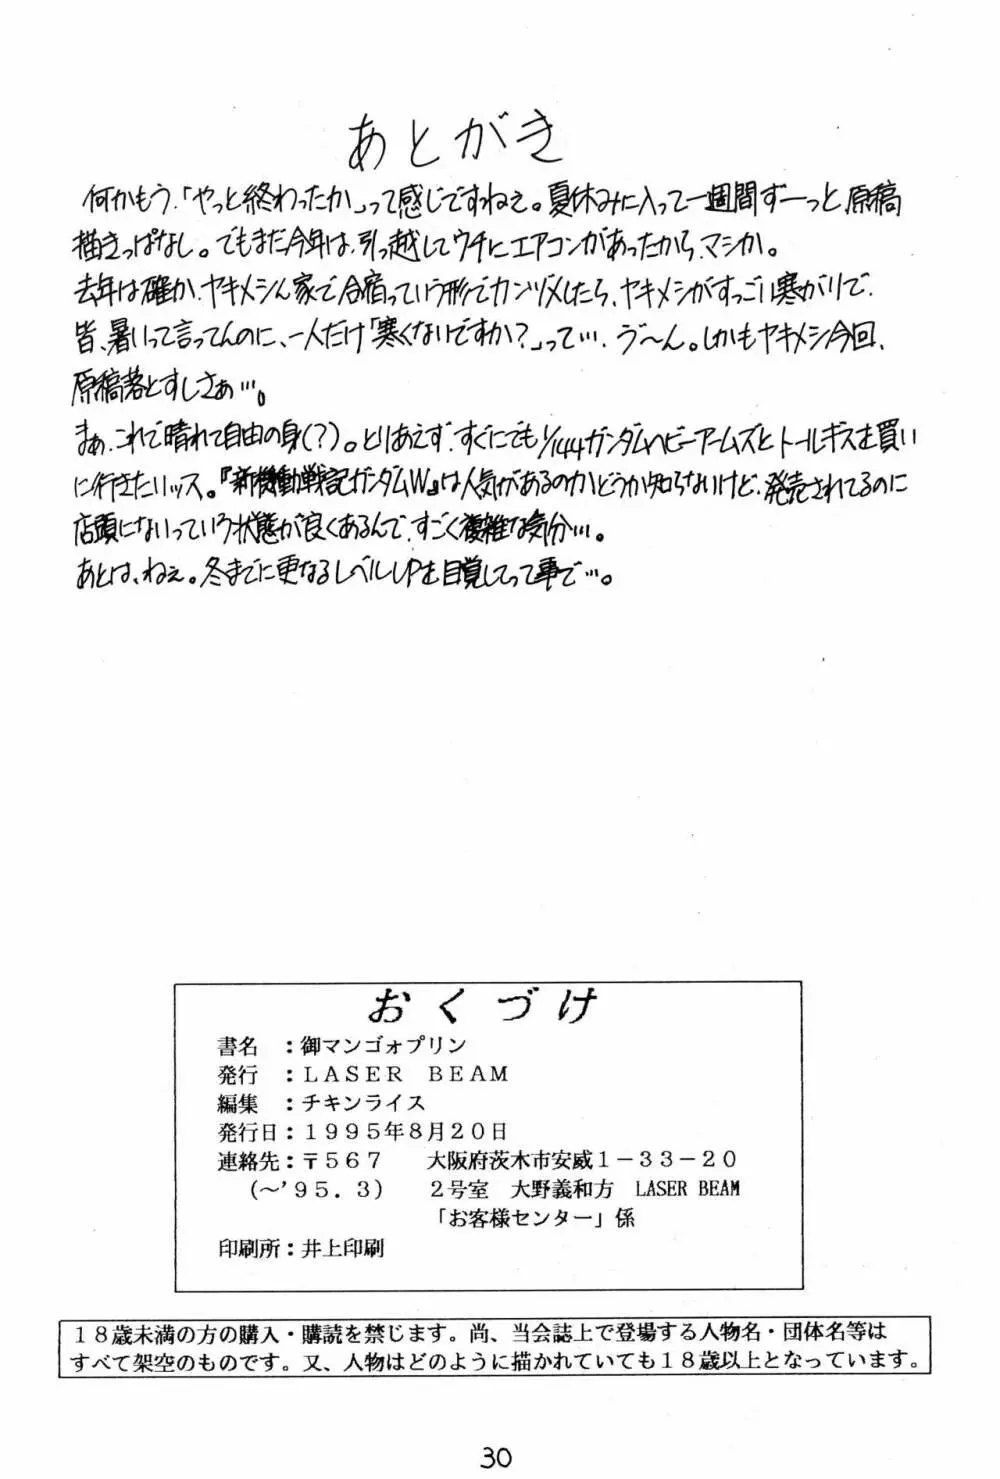 あとがき
何かもう、「やっと終わったか」って感じですねぇ。夏休みに入って一週間ずーっと原稿
描きっぱなし。でもまだ今年は、引っ越してウチにエアコンがあったから、マシか。
去年は確か、ヤキメシん家で合宿っていう形でカンヅメしたら、ヤキメシがすっごい寒がりで、
皆、暑いって言ってんのに、一人だけ「寒くないですか？」って…。う〜ん。しかもヤキメシ今回、
原稿落とすしさぁ…。
まぁ、これで晴れて自由の身(？)。とりあえず、すぐにでも1/144ガンダムヘビーアームズとトールギスを買い
に行きたいッス。『新機動戦記ガンダムW』は人気があるのかどうか知らないけど、発売されてるのに
店頭にないっていう状態が良くあるんで、すごく複雑な気分…。
あとは、ねぇ。冬までに更なるレベルUPを目覚してって事で…。
おくづけ
書名　：御マンゴォプリン
発行　：ＬＡＳＥＲ　ＢＥＡＭ
編集　：チキンライス
発行日：１９９５年８月２０日
連絡先：〒５６７　　大阪府茨木市安威１－３３－２０
（～'９５．３）　２号室　大野義和方　LASER BEAM
「お客様センター」係
印刷所：井上印刷
１８歳未満の方の購入・購読を禁じます。尚、当会誌上で登場する人物名・団体名等は
すべて架空のものです。又、人物はどのように描かれていても１８歳以上となっています。
30